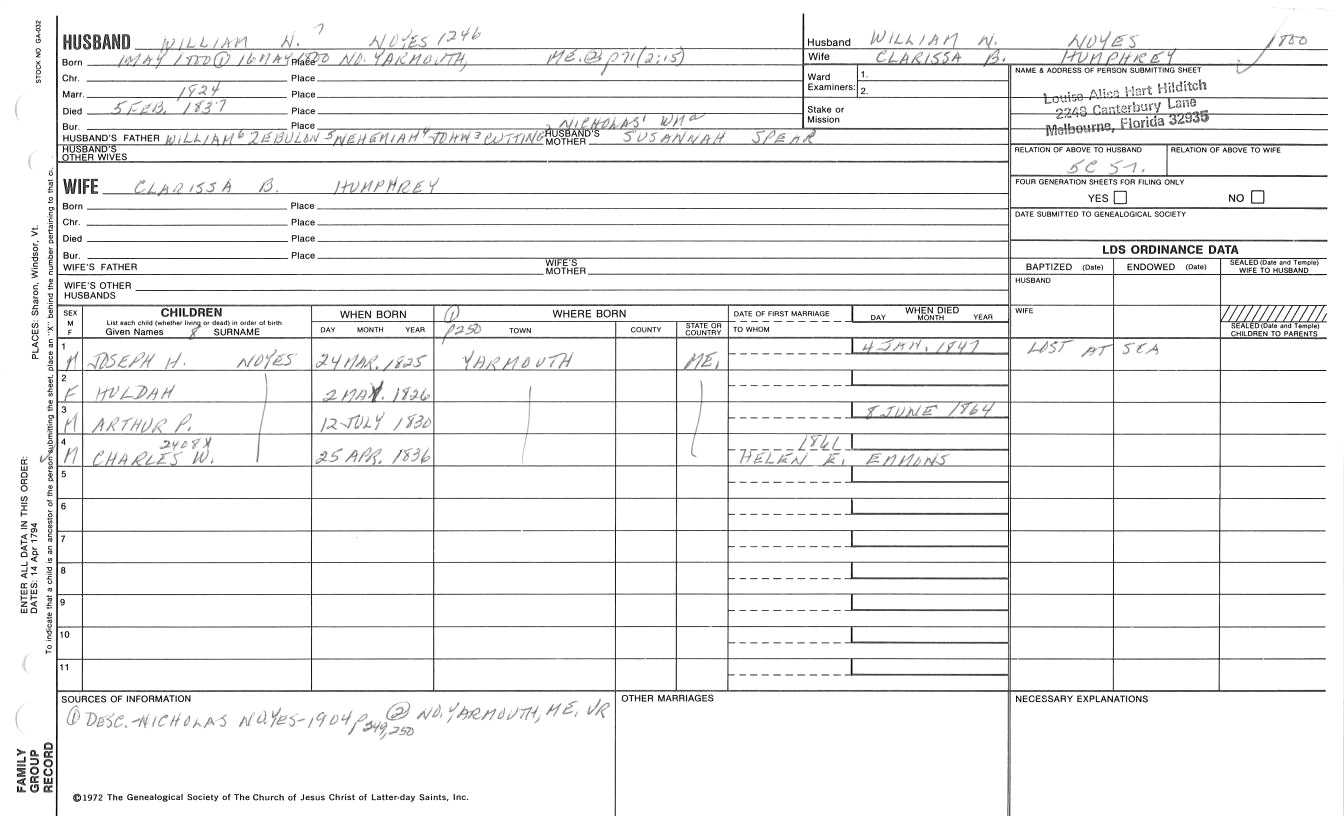 STOCK NO GA-032
HUSBAND WILLIAM N. 7 NOYES 1246
Born 1 MAY 1800 ① 16 MAY 1800 Place NO. YARMOUTH, ME. ② p71 (2:15)
Chr. Place
Marr. 1824 Place
Died 5 FEB. 1837 Place
Bur. Place
HUSBAND'S FATHER WILLIAM 6 ZEBULON 5 NEHEMIAH 4 JOHN 3 CUTTING 2 NICHOLAS 1 WMA
HUSBAND'S MOTHER SUSANNAH SPEAR
HUSBAND'S OTHER WIVES
WIFE CLARISSA B. HUMPHREY
Born Place
Chr. Place
Died Place
Bur. Place
WIFE'S FATHER WIFE'S MOTHER
WIFE'S OTHER HUSBANDS
Husband WILLIAM N. NOYES 1800
Wife CLARISSA B. HUMPHREY
Ward Examiners: 1. 2.
Stake or Mission
NAME & ADDRESS OF PERSON SUBMITTING SHEET
Louise Alice Hart Hilditch
2248 Canterbury Lane
Melbourne, Florida 32935
RELATION OF ABOVE TO HUSBAND RELATION OF ABOVE TO WIFE
5C 5T.
FOUR GENERATION SHEETS FOR FILING ONLY
YES NO
DATE SUBMITTED TO GENEALOGICAL SOCIETY
LDS ORDINANCE DATA
BAPTIZED (Date) ENDOWED (Date) SEALED (Date and Temple) WIFE TO HUSBAND
HUSBAND
WIFE
SEALED (Date and Temple) CHILDREN TO PARENTS
SEX M F
CHILDREN
List each child (whether living or dead) in order of birth
Given Names 8 SURNAME
WHEN BORN
DAY MONTH YEAR
① p250
WHERE BORN
TOWN COUNTY STATE OR COUNTRY
DATE OF FIRST MARRIAGE
TO WHOM
WHEN DIED
DAY MONTH YEAR
1 M JOSEPH H. NOYES 24 MAR. 1825 YARMOUTH ME. 4 JAN. 1847 LOST AT SEA
2 F HULDAH 2 MAY. 1826
3 M ARTHUR P. 12 JULY 1830 8 JUNE 1864
4 M CHARLES W. 2408X 25 APR. 1836 1861 HELEN E. EMMONS
5
6
7
8
9
10
11
SOURCES OF INFORMATION
① DESC.-NICHOLAS NOYES-1904 p 249,250 ② NO. YARMOUTH, ME. VR
OTHER MARRIAGES
NECESSARY EXPLANATIONS
©1972 The Genealogical Society of The Church of Jesus Christ of Latter-day Saints, Inc.
FAMILY GROUP RECORD
ENTER ALL DATA IN THIS ORDER:
DATES: 14 Apr 1794
PLACES: Sharon, Windsor, Vt.
To indicate that a child is an ancestor of the person submitting the sheet, place an "X" behind the number pertaining to that c.